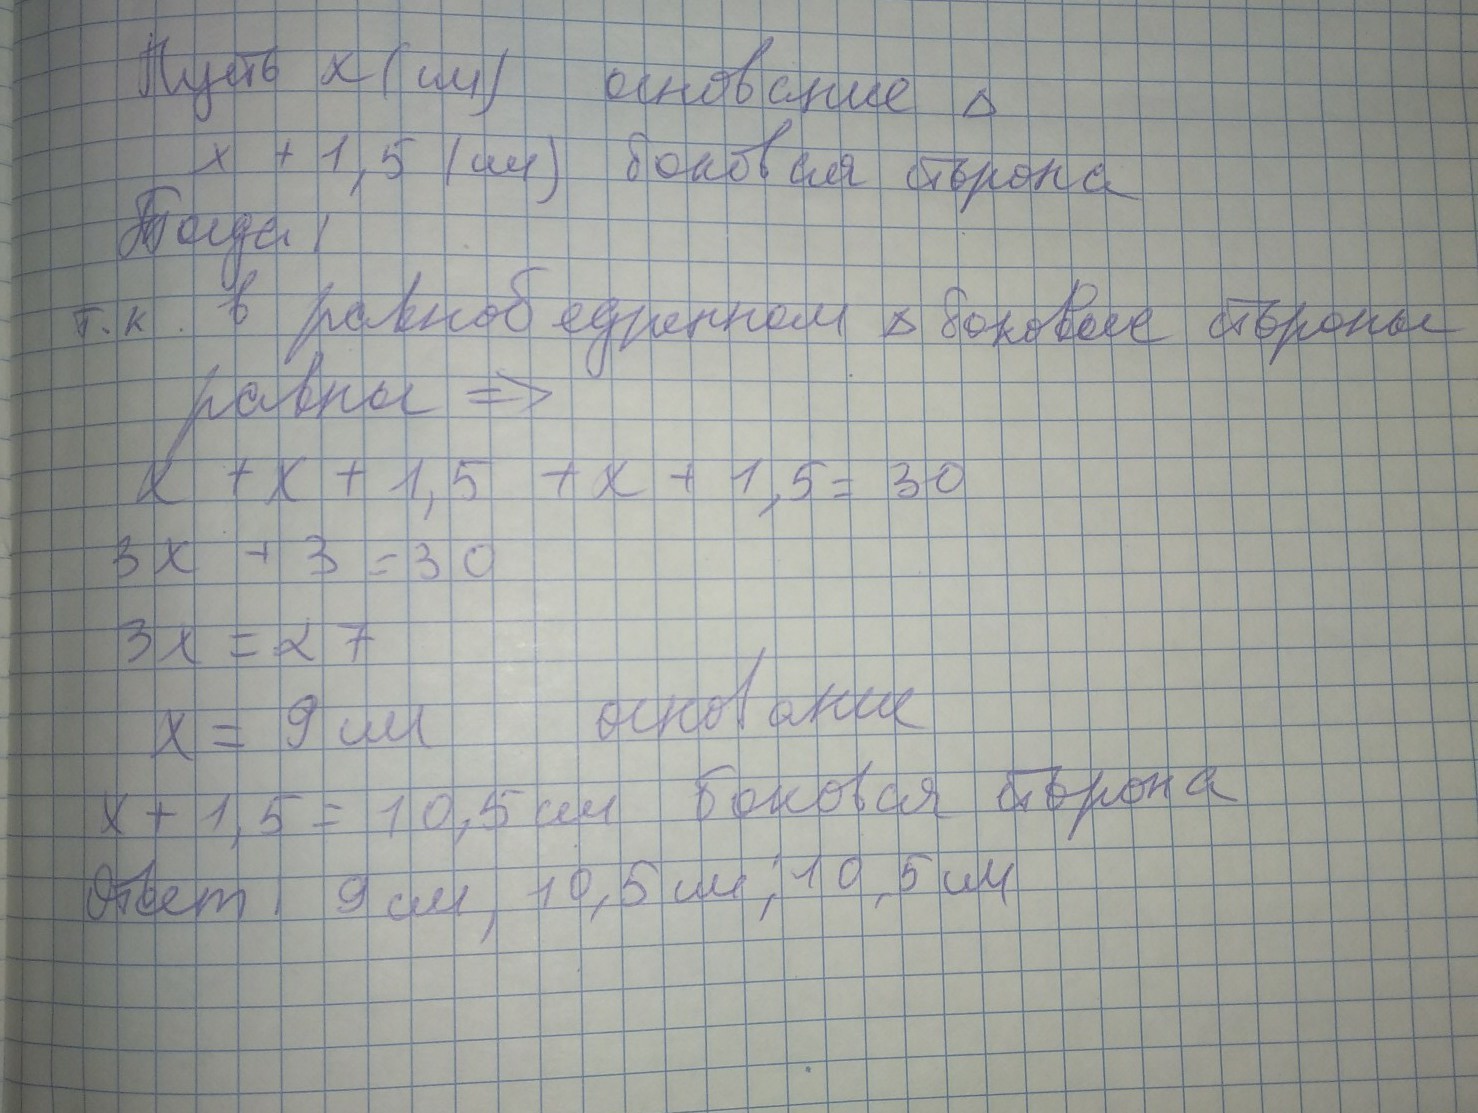 Пусть x (см) основание △
x + 1,5 (см) боковая сторона
Тогда,
т.к. в равнобедренном △ боковые стороны
равны =>
x + x + 1,5 + x + 1,5 = 30
3x + 3 = 30
3x = 27
x = 9 см основание
x + 1,5 = 10,5 см боковая сторона
Ответ: 9 см, 10,5 см; 10,5 см